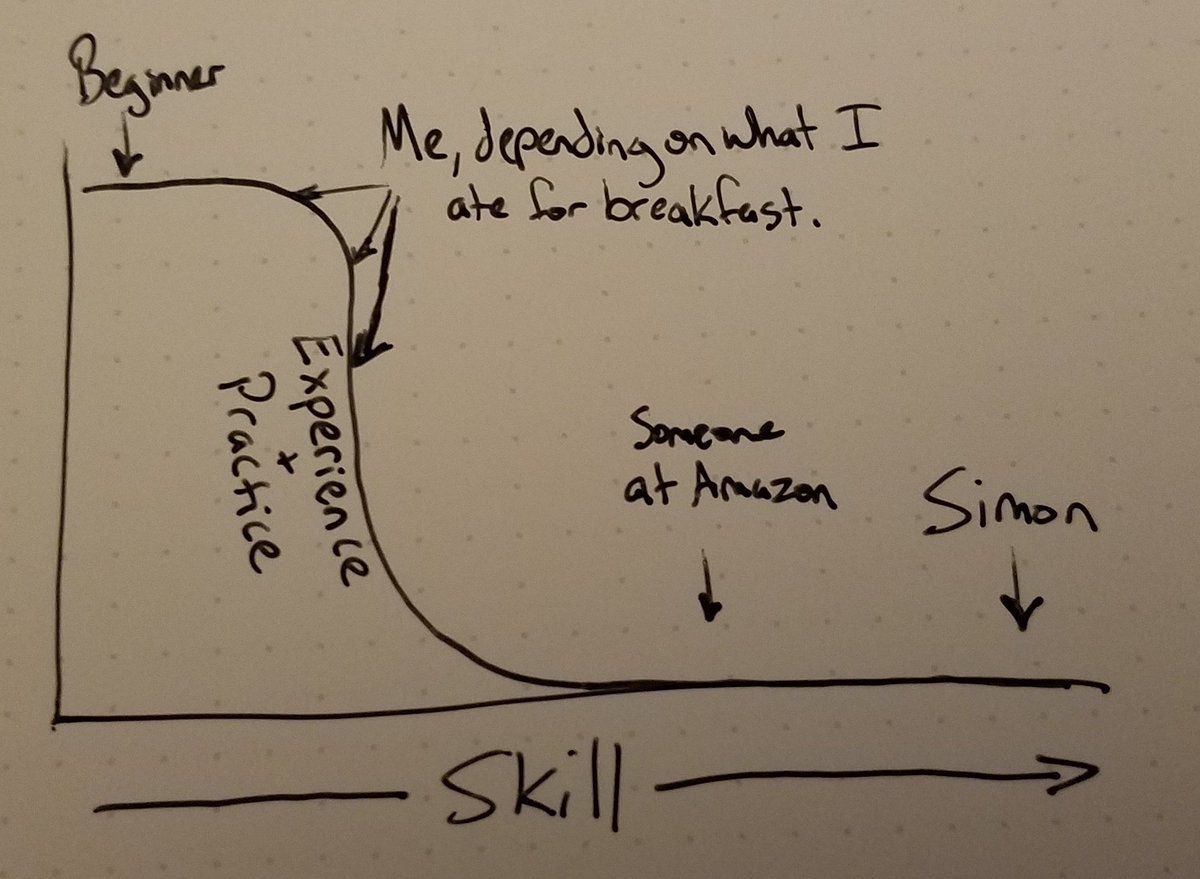 Beginner
Me, depending on what I
ate for breakfast.
Experience
+
Practice
Someone
at Amazon
Simon
Skill